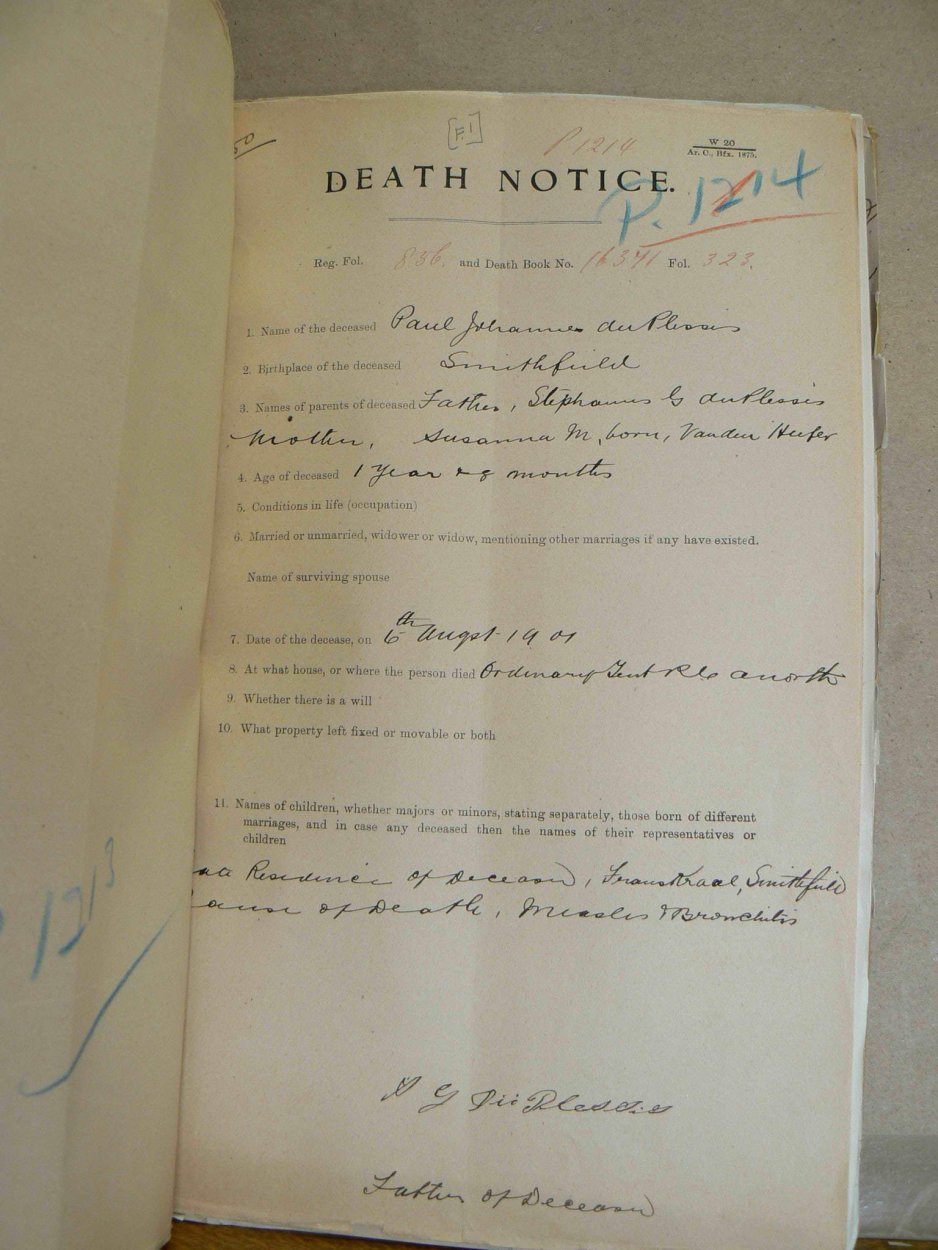 50
[F.1]
P 1214
W 20
Ar. C., Bfx. 1875.
DEATH NOTICE.
P. 1214
Reg. Fol. 836. and Death Book No. 16371 Fol. 323.
1. Name of the deceased Paul Johannes du Plessis
2. Birthplace of the deceased Smithfield
3. Names of parents of deceased Father, Stephanus G du Plessis
Mother, Susanna M, born, Vanden Heefer
4. Age of deceased 1 Year & 8 months
5. Conditions in life (occupation)
6. Married or unmarried, widower or widow, mentioning other marriages if any have existed.
Name of surviving spouse
7. Date of the decease, on 6th Augst 1901
8. At what house, or where the person died Ordinary Tent North
9. Whether there is a will
10. What property left fixed or movable or both
11. Names of children, whether majors or minors, stating separately, those born of different
marriages, and in case any deceased then the names of their representatives or
children
ate Residence of Deceased, Franskraal, Smithfield
ause of Death, Measles & Bronchitis
S G Du Plessis
Father of Deceased
P 1213